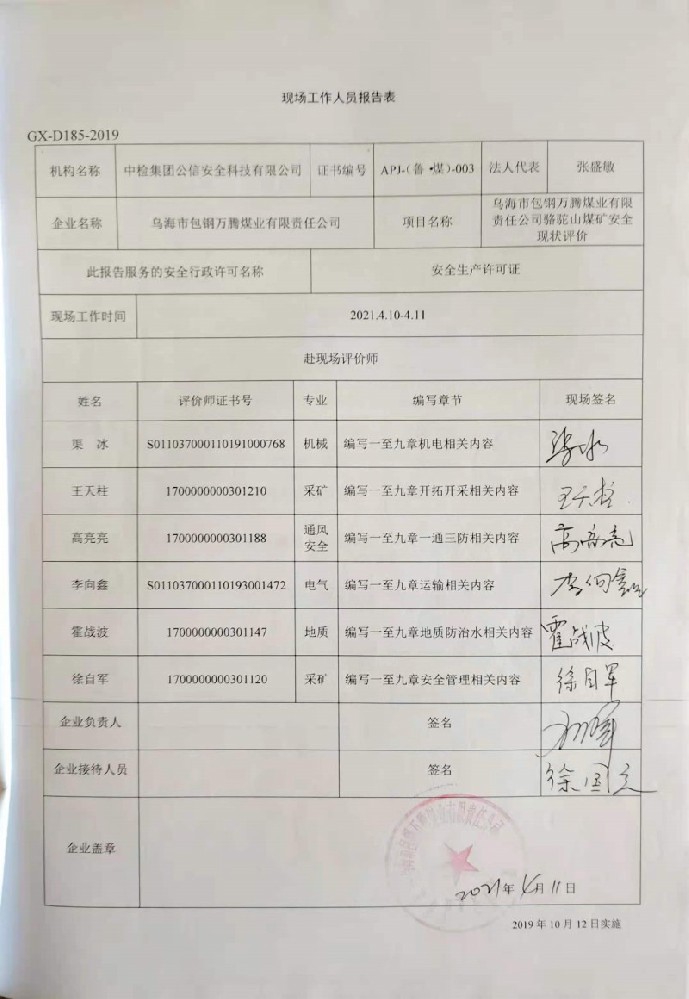 现场工作人员报告表
GX-D185-2019
机构名称 中检集团公信安全科技有限公司 证书编号 APJ-(鲁·煤)-003 法人代表 张盛敏
企业名称 乌海市包钢万腾煤业有限责任公司 项目名称 乌海市包钢万腾煤业有限
责任公司骆驼山煤矿安全
现状评价
此报告服务的安全行政许可名称 安全生产许可证
现场工作时间 2021.4.10-4.11
赴现场评价师
姓名 评价师证书号 专业 编写章节 现场签名
渠 冰 S011037000110191000768 机械 编写一至九章机电相关内容 渠冰
王天柱 1700000000301210 采矿 编写一至九章开拓开采相关内容 王天柱
高亮亮 1700000000301188 通风
安全 编写一至九章一通三防相关内容 高亮亮
李向鑫 S011037000110193001472 电气 编写一至九章运输相关内容 李向鑫
霍战波 1700000000301147 地质 编写一至九章地质防治水相关内容 霍战波
徐自军 1700000000301120 采矿 编写一至九章安全管理相关内容 徐自军
企业负责人 签名
企业接待人员 签名 徐国
企业盖章
2021年4月11日
2019年10月12日实施